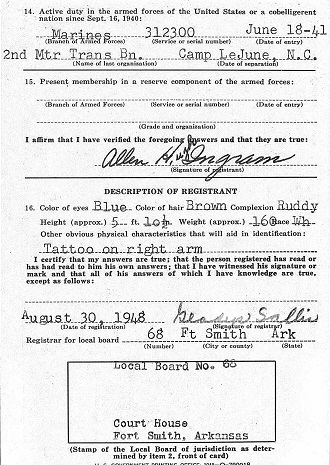 14. Active duty in the armed forces of the United States or a cobelligerent
nation since Sept. 16, 1940:
Marines 312300 June 18-41
(Branch of Armed Forces) (Service or serial number) (Date of entry)
2nd Mtr Trans Bn. Camp LeJune, N.C.
(Name of last organization) (Date of separation)
15. Present membership in a reserve component of the armed forces:
(Branch of Armed Forces) (Service or serial number) (Date of entry)
(Grade and organization)
I affirm that I have verified the foregoing answers and that they are true:
Allen H. Ingram
(Signature of registrant)
DESCRIPTION OF REGISTRANT
16. Color of eyes Blue Color of hair Brown Complexion Ruddy
Height (approx.) 5 ft. 10½ Weight (approx.) 160 Race Wh
Other obvious physical characteristics that will aid in identification:
Tattoo on right arm
I certify that my answers are true; that the person registered has read or
has had read to him his own answers; that I have witnessed his signature or
mark and that all of his answers of which I have knowledge are true,
except as follows:
August 30, 1948 Gladys Sallis
(Date of registration) (Signature of registrar)
Registrar for local board 68 Ft Smith Ark
(Number) (City or county) (State)
Local Board No. 68
Court House
Fort Smith, Arkansas
(Stamp of the Local Board of jurisdiction as deter-
mined by item 2, front of card)